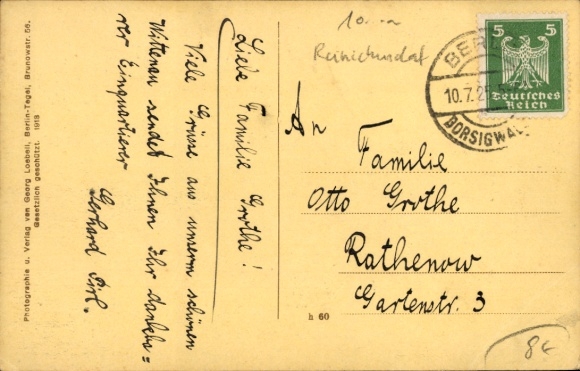 Liebe Familie Grothe!
Viele Grüsse aus unserm schönen
Wittenau sendet Ihnen Ihr dankba=
rer Einquartierer
Gerhard
Photographie u. Verlag von Georg Loebell, Berlin-Tegel, Brunowstr. 56.
Gesetzlich geschützt. 1913
10.
Reinickendorf
5 5
Deutsches
Reich
BERLIN
10.7.25
BORSIGWALDE
An
Familie
Otto Grothe
Rathenow
Gartenstr. 3
h 60
8€